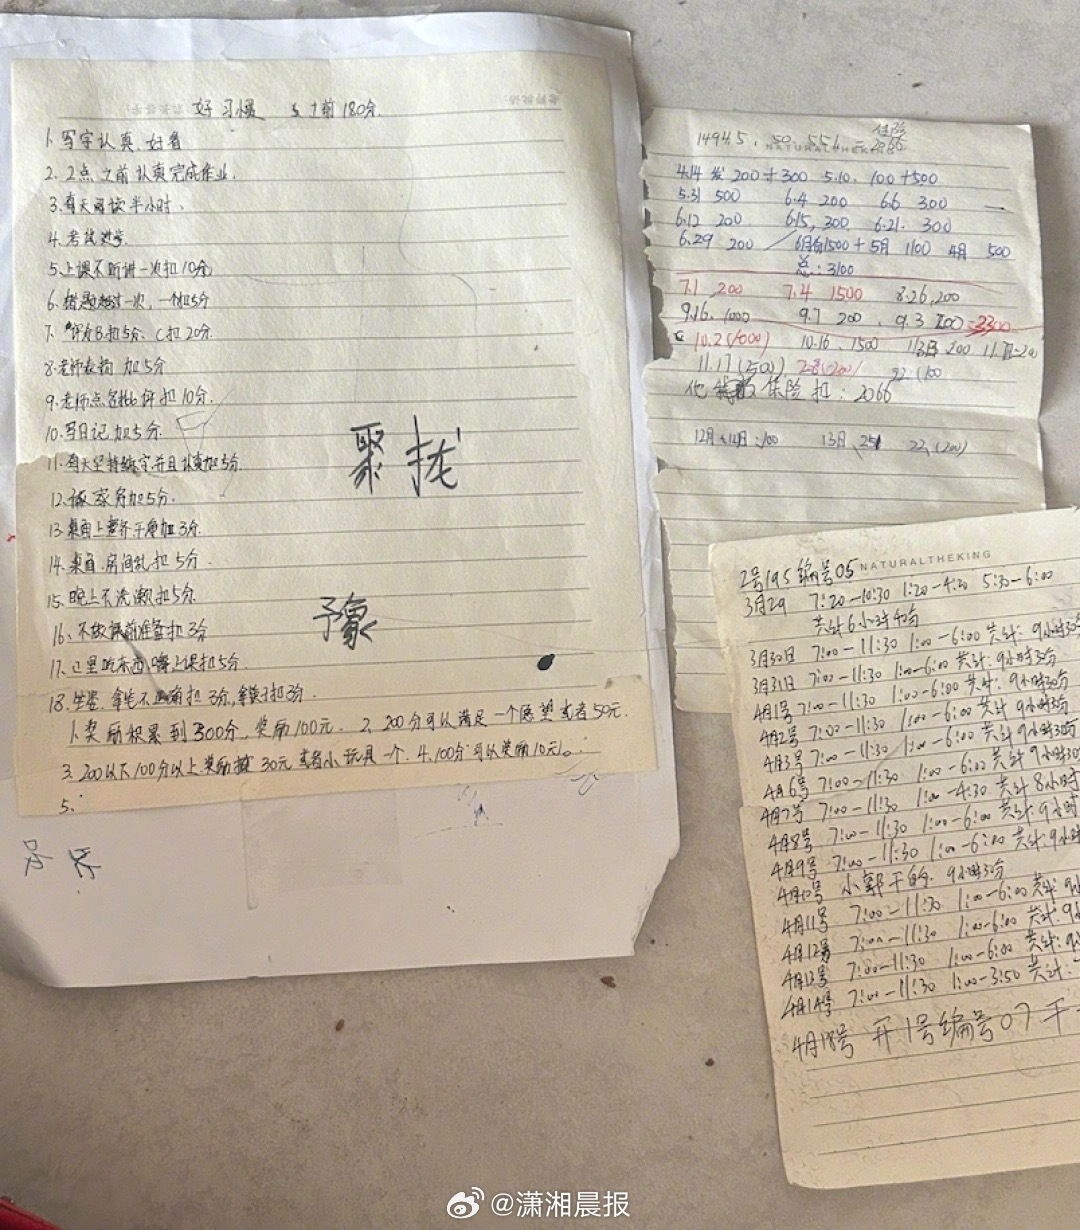 好习惯 前180分
1、写字认真、好看
2、2点之前认真完成作业.
3.每天阅读半小时、
4.考试进步
5、上课不听讲一次扣10分
6、错题超过一次，一个扣5分
7、评价B扣5分、C扣20分.
8.老师表扬 加5分
9.老师点名批评扣10分.
10.写日记加5分.
11.每天坚持练字并且认真加5分.
12.家务加5分.
13.桌面上整齐干净加3分.
14.桌面.房间乱扣5分.
15.晚上不洗漱扣5分.
16、不做课前准备扣3分
17.上课扣5分.
18.坐姿、拿笔不正确扣3分
1.奖励积累到300分，奖励100元. 2.200分可以满足一个愿望或者50元.
3.200以下100分以上奖励 30元或者小玩具一个. 4.100分可以奖励10元。
5.
聚拢
予象
14945、50
NATURALTHEKING
4.14 发 200+300 5.10. 100+500
5.31 500 6.4 200 6.6 300
6.12 200 6.15, 300 6.21. 300
6.29 200 6月份1500+5月 1100 4月 500
总:3100
7.1 200 7.4 1500 8.26,200
9.16. 1000 9.7 200 、9.3
10.2(1000) 10.16、1500 200
11.17(200)
他 保险扣: 2066
12月 100 13日、22、(200)
2号195编号05 NATURALTHEKING
3月29 7:20—10:30 1:20—4:20 5:30—6:00
共计6小时40分
3月30日 7:00—11:30 1:00—6:00 共计:9小时30分
3月31日 7:00—11:30 1:00—6:00 共计:9小时30分
4月1号 7:00—11:30 1:00—6:00 共计:9小时30分
4月2号 7:00—11:30 1:00—6:00 共计 9小时30分
4月3号 7:00—11:30 1:00—6:00 共计 9小时30分
4月6号 7:00—11:30 1:00—6:00 共计 9小时30
4月7号 7:00—11:30 1:00—4:30 共计 8小时
4月8号 7:00—11:30 1:00—6:00 共计:9小时
4月9号 7:00—11:30 1:00—6:00 共计:9小时
4月10号 小郭干的. 9小时30分
4月11号 7:00—11:30 1:00—6:00 共计:9
4月12号 7:00—11:30 1:00—6:00 共计:9
4月13号 7:00—11:30 1:00—6:00 共计:9
4月14号 7:00—11:30 1:00—3:50 共计:
4月18号 开1号编号07干
@潇湘晨报